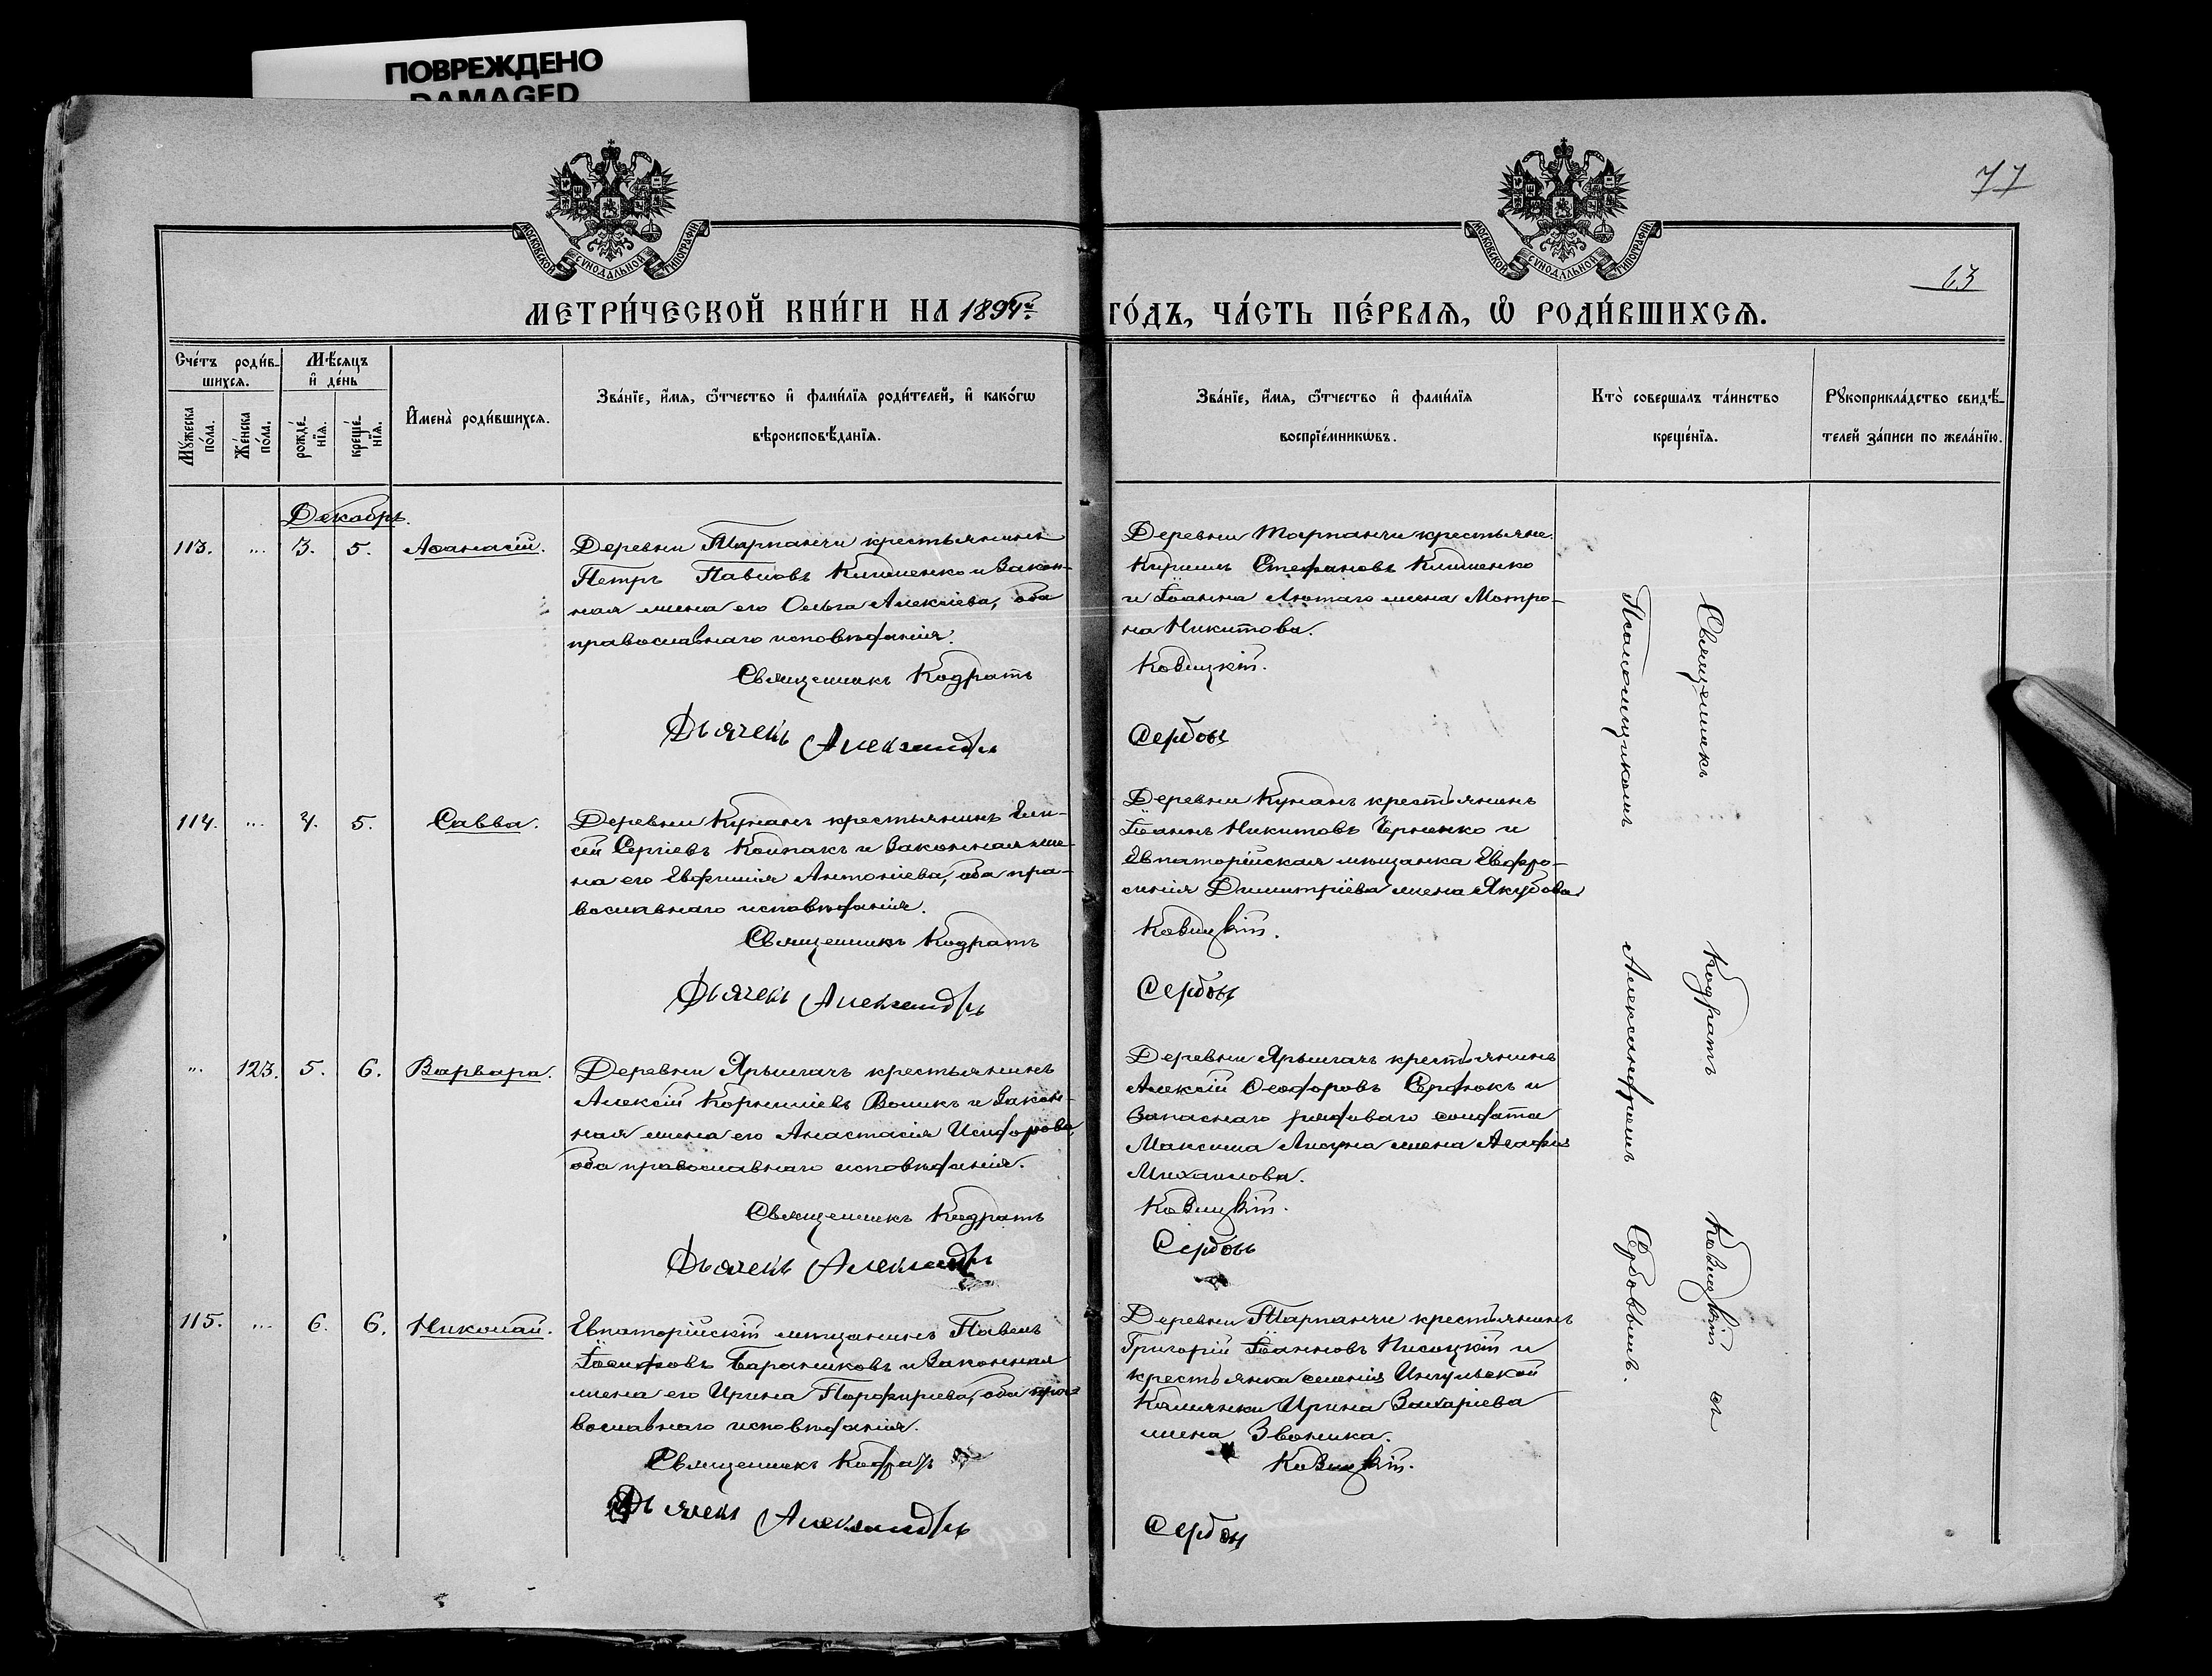 ПОВРЕЖДЕНО
DAMAGED
77
МОСКОВСКОЙ СѴНОДАЛЬНОЙ ТИПОГРАФІИ
МОСКОВСКОЙ СѴНОДАЛЬНОЙ ТИПОГРАФІИ
МЕТРИ́ЧЕСКОЙ КНИ́ГИ НА 1894й
ГО́ДЪ, ЧА́СТЬ ПЕ́РВАѦ, Ѡ҆ РОДИ́ВШИХСѦ.
Сче́тъ роди́в-
шихсѧ.
Мꙋ́жеска по́ла.
Же́нска по́ла.
Мѣ́сѧцъ
и҆ де́нь
рожде́-
нїѧ.
креще́-
нїѧ.
И҆мена̀ роди́вшихсѧ.
Зва́нїе, и҆́мѧ, ѻ҆́тчество и҆ фами́лїѧ роди́телей, и҆ како́гѡ
вѣроисповѣ́данїѧ.
Зва́нїе, и҆́мѧ, ѻ҆́тчество и҆ фами́лїѧ
воспрїе́мникѡвъ.
Кто̀ соверша́лъ та́инство
креще́нїѧ.
Рꙋкоприкла́дство свидѣ́-
телей за́писи по жела́нїю.
Декабрь.
113.
...
3.
5.
Аѳанасій.
Деревни Тарпанчи крестьянинъ
Петръ Павловъ Клименко и закон-
ная жена его Ольга Алексіева, оба
православнаго исповѣданія.
Священникъ Кодратъ
Дьячекъ Александръ
Деревни Тарпанчи крестьяне
Кириллъ Стефановъ Клименко
и Іоанна Лютаго жена Матро-
на Никитова.
Ковицкій.
Сербовъ
114.
...
4.
5.
Савва.
Деревни Кунанъ крестьянинъ Ели-
сей Сергіевъ Колпакъ и законная же-
на его Евфимія Антоніева, оба пра-
вославнаго исповѣданія.
Священникъ Кодратъ
Дьячекъ Александръ
Деревни Кунанъ крестьянинъ
Іоаннъ Никитовъ Черненко и
Евпаторійская мѣщанка Евфро-
синія Димитріева жена Якубова
Ковицкій.
Сербовъ
...
123.
5.
6.
Варвара.
Деревни Ярылгачъ крестьянинъ
Алексій Корниліевъ Воликъ и закон-
ная жена его Анастасія Исидорова,
оба православнаго исповѣданія.
Священникъ Кодратъ
Дьячекъ Александръ
Деревни Ярылгачъ крестьянинъ
Алексій Ѳеодоровъ Сердюкъ и
запаснаго рядоваго солдата
Максима Лисуна жена Агафія
Михаилова.
Ковицкій.
Сербовъ
115.
...
6.
6.
Николай.
Евпаторійскій мѣщанинъ Павелъ
Іосифовъ Баранниковъ и законная
жена его Ирина Порфиріева, оба пра-
вославнаго исповѣданія.
Священникъ Кодратъ
Дьячекъ Александръ
Деревни Тарпанчи крестьянинъ
Григорій Іоанновъ Писоцкій и
крестьянка селенія Ингульской
Каменки Ирина Захаріева
жена Звоника.
Ковицкій.
Сербовъ
Священникъ Кодратъ Ковицкій съ
Псаломщикомъ Александромъ Сербовымъ.